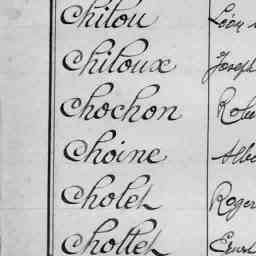 Chilou Léon
Chiloux Joseph
Chochon
Choine
Cholet Roger
Chollet